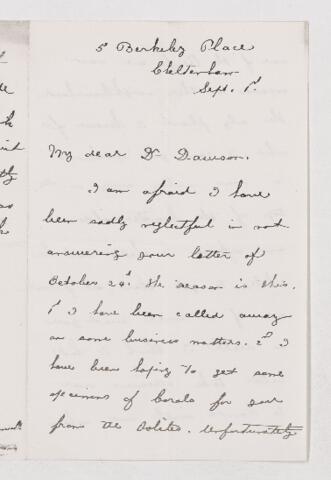 5 Berkeley Place
Cheltenham
Sept. 1st.
My dear Dr Dawson.
I am afraid I have
been sadly neglectful in not
answering your letter of
October 24th. The reason is this.
1st I have been called away
on some business matters. 2nd I
have been hoping to get some
specimens of Corals for you
from the Oolites. Unfortunately